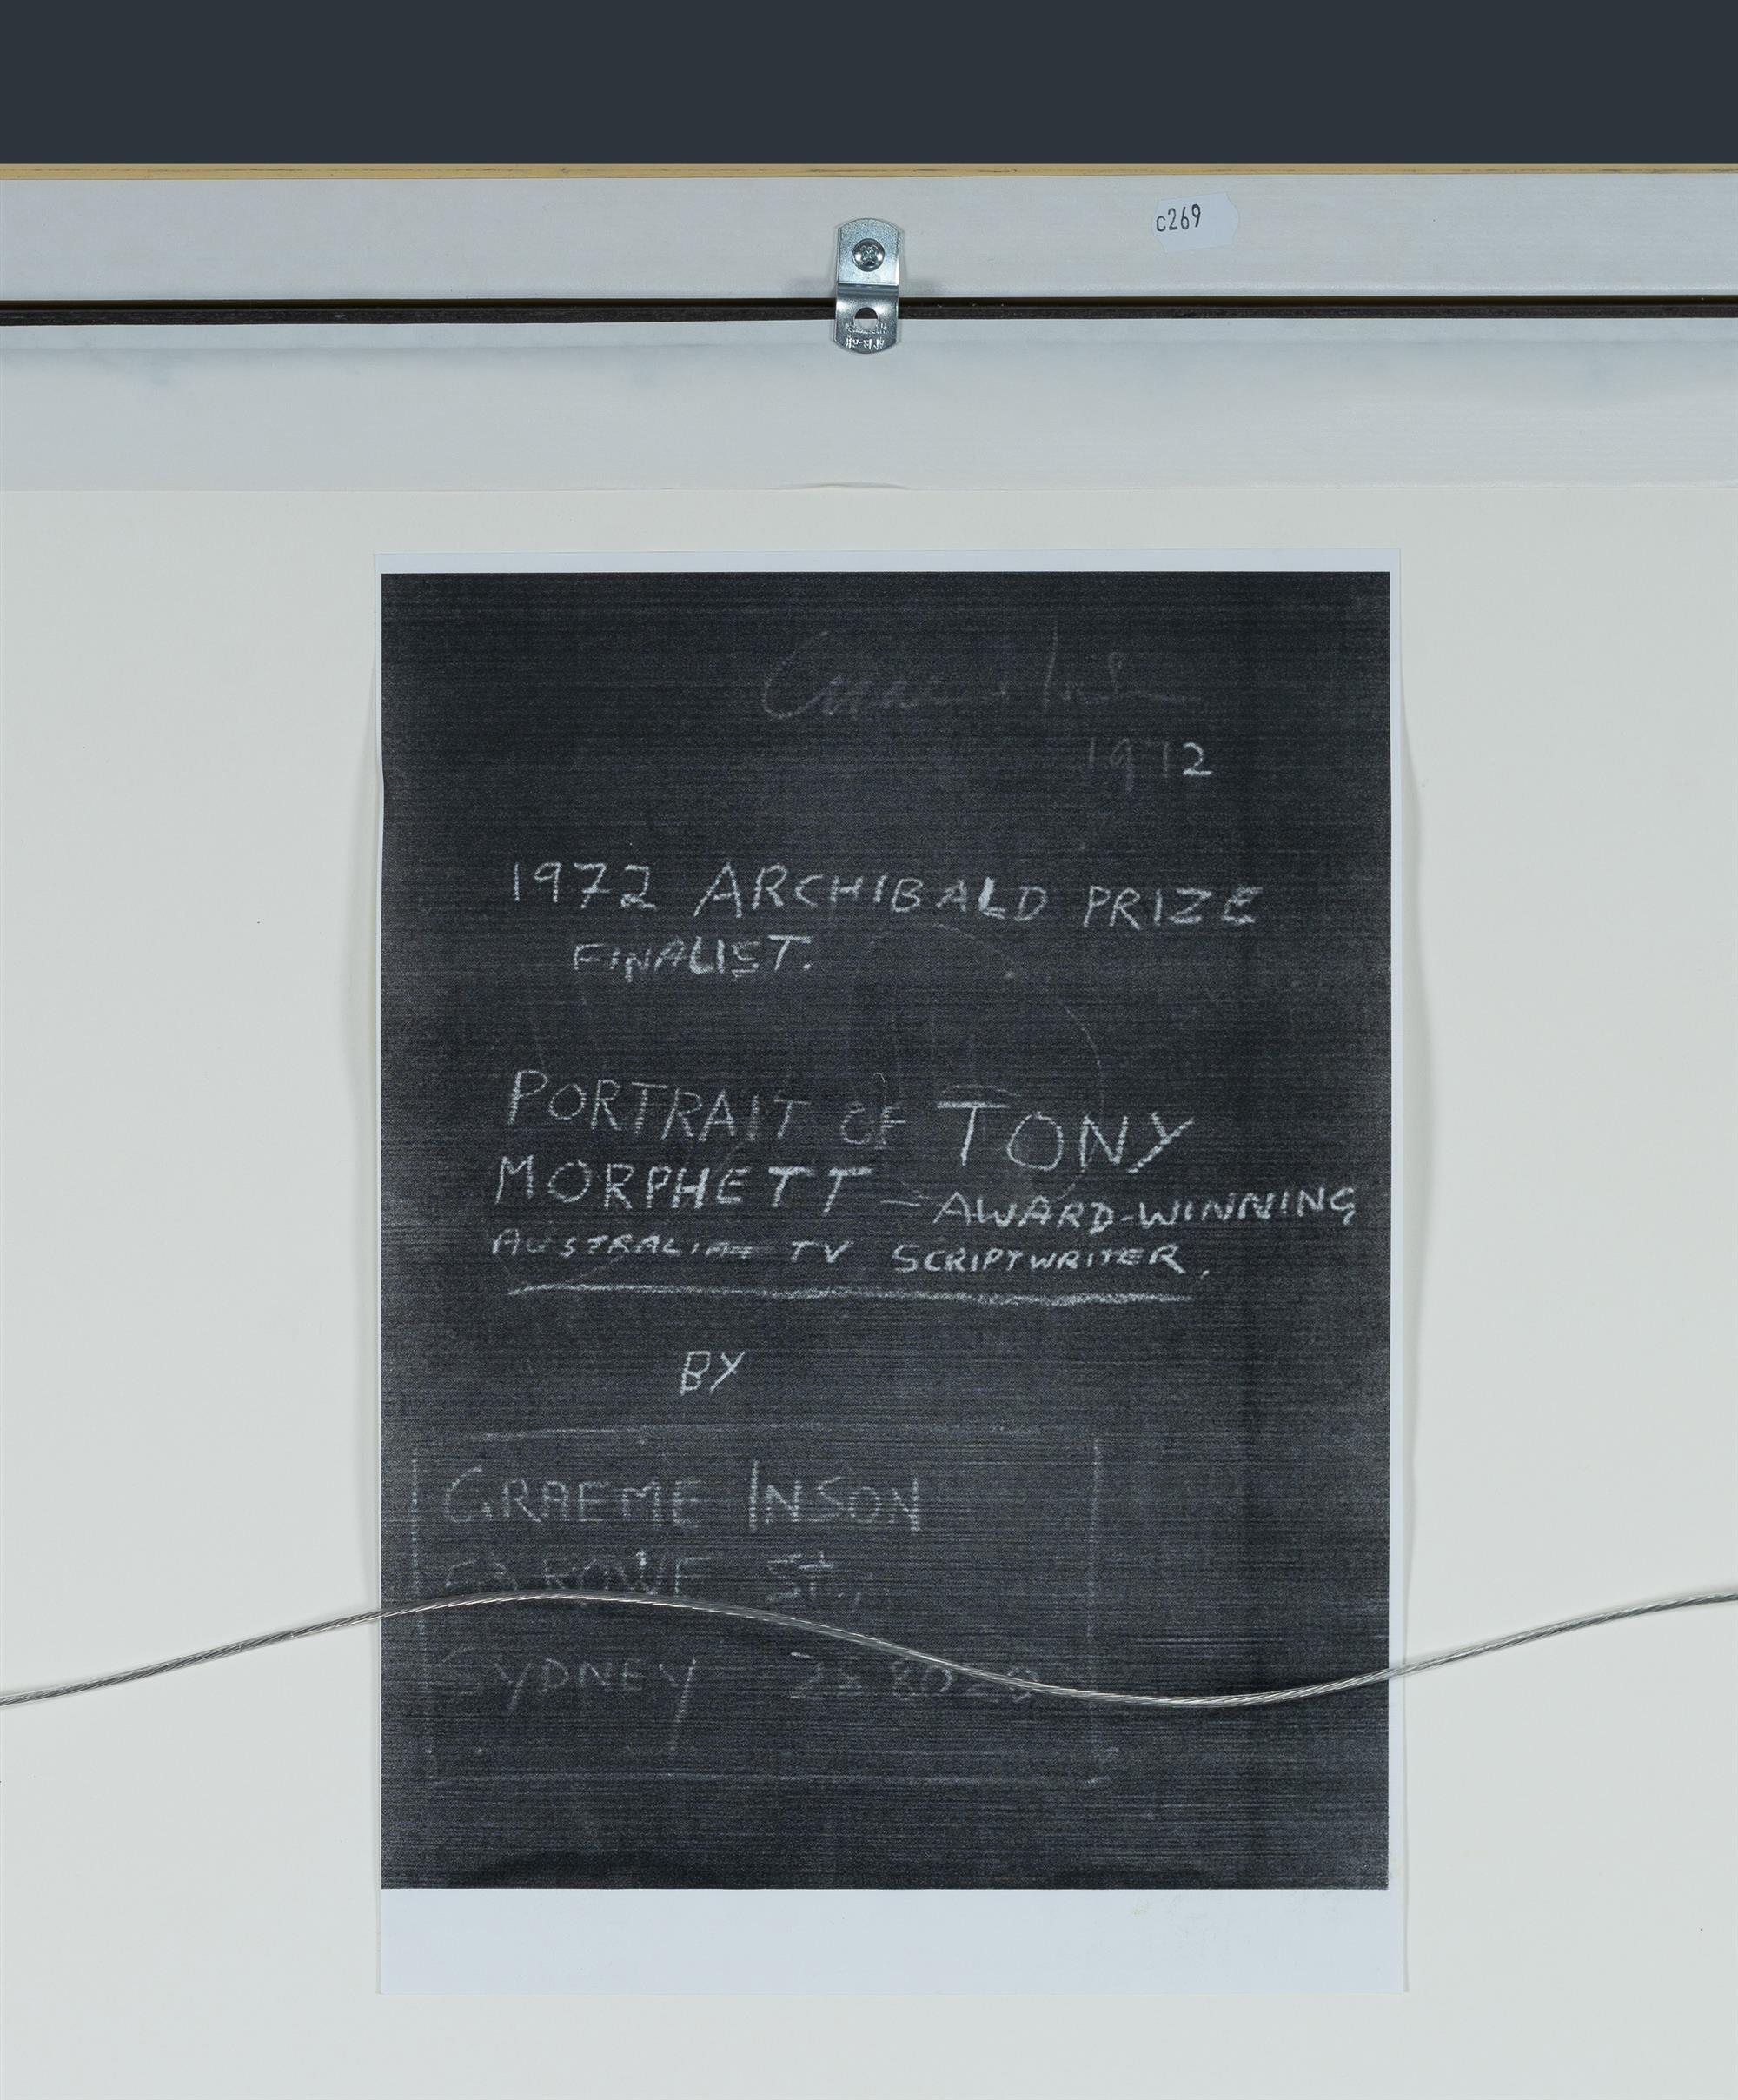 c269
1972
1972 ARCHIBALD PRIZE
FINALIST.
PORTRAIT OF TONY
MORPHETT – AWARD-WINNING
AUSTRALIAN TV SCRIPTWRITER.
BY
GRAEME INSON
ROWE St.,
SYDNEY